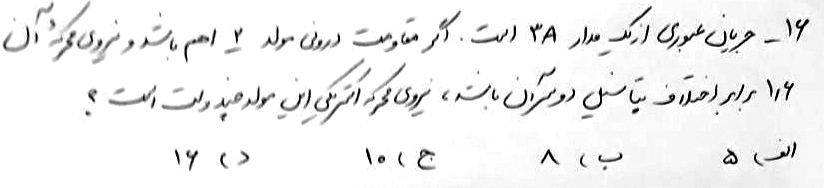 ۱۶- جریان عبوری از یک مدار ۳A است. اگر مقاومت درونی مولد ۲ اهم باشد و نیروی محرکه آن
۱٫۶ برابر اختلاف پتانسیل دو سر آن باشد، نیروی محرکه الکتریکی این مولد چند ولت است؟
الف) ۵ ب) ۸ ج) ۱۰ د) ۱۶